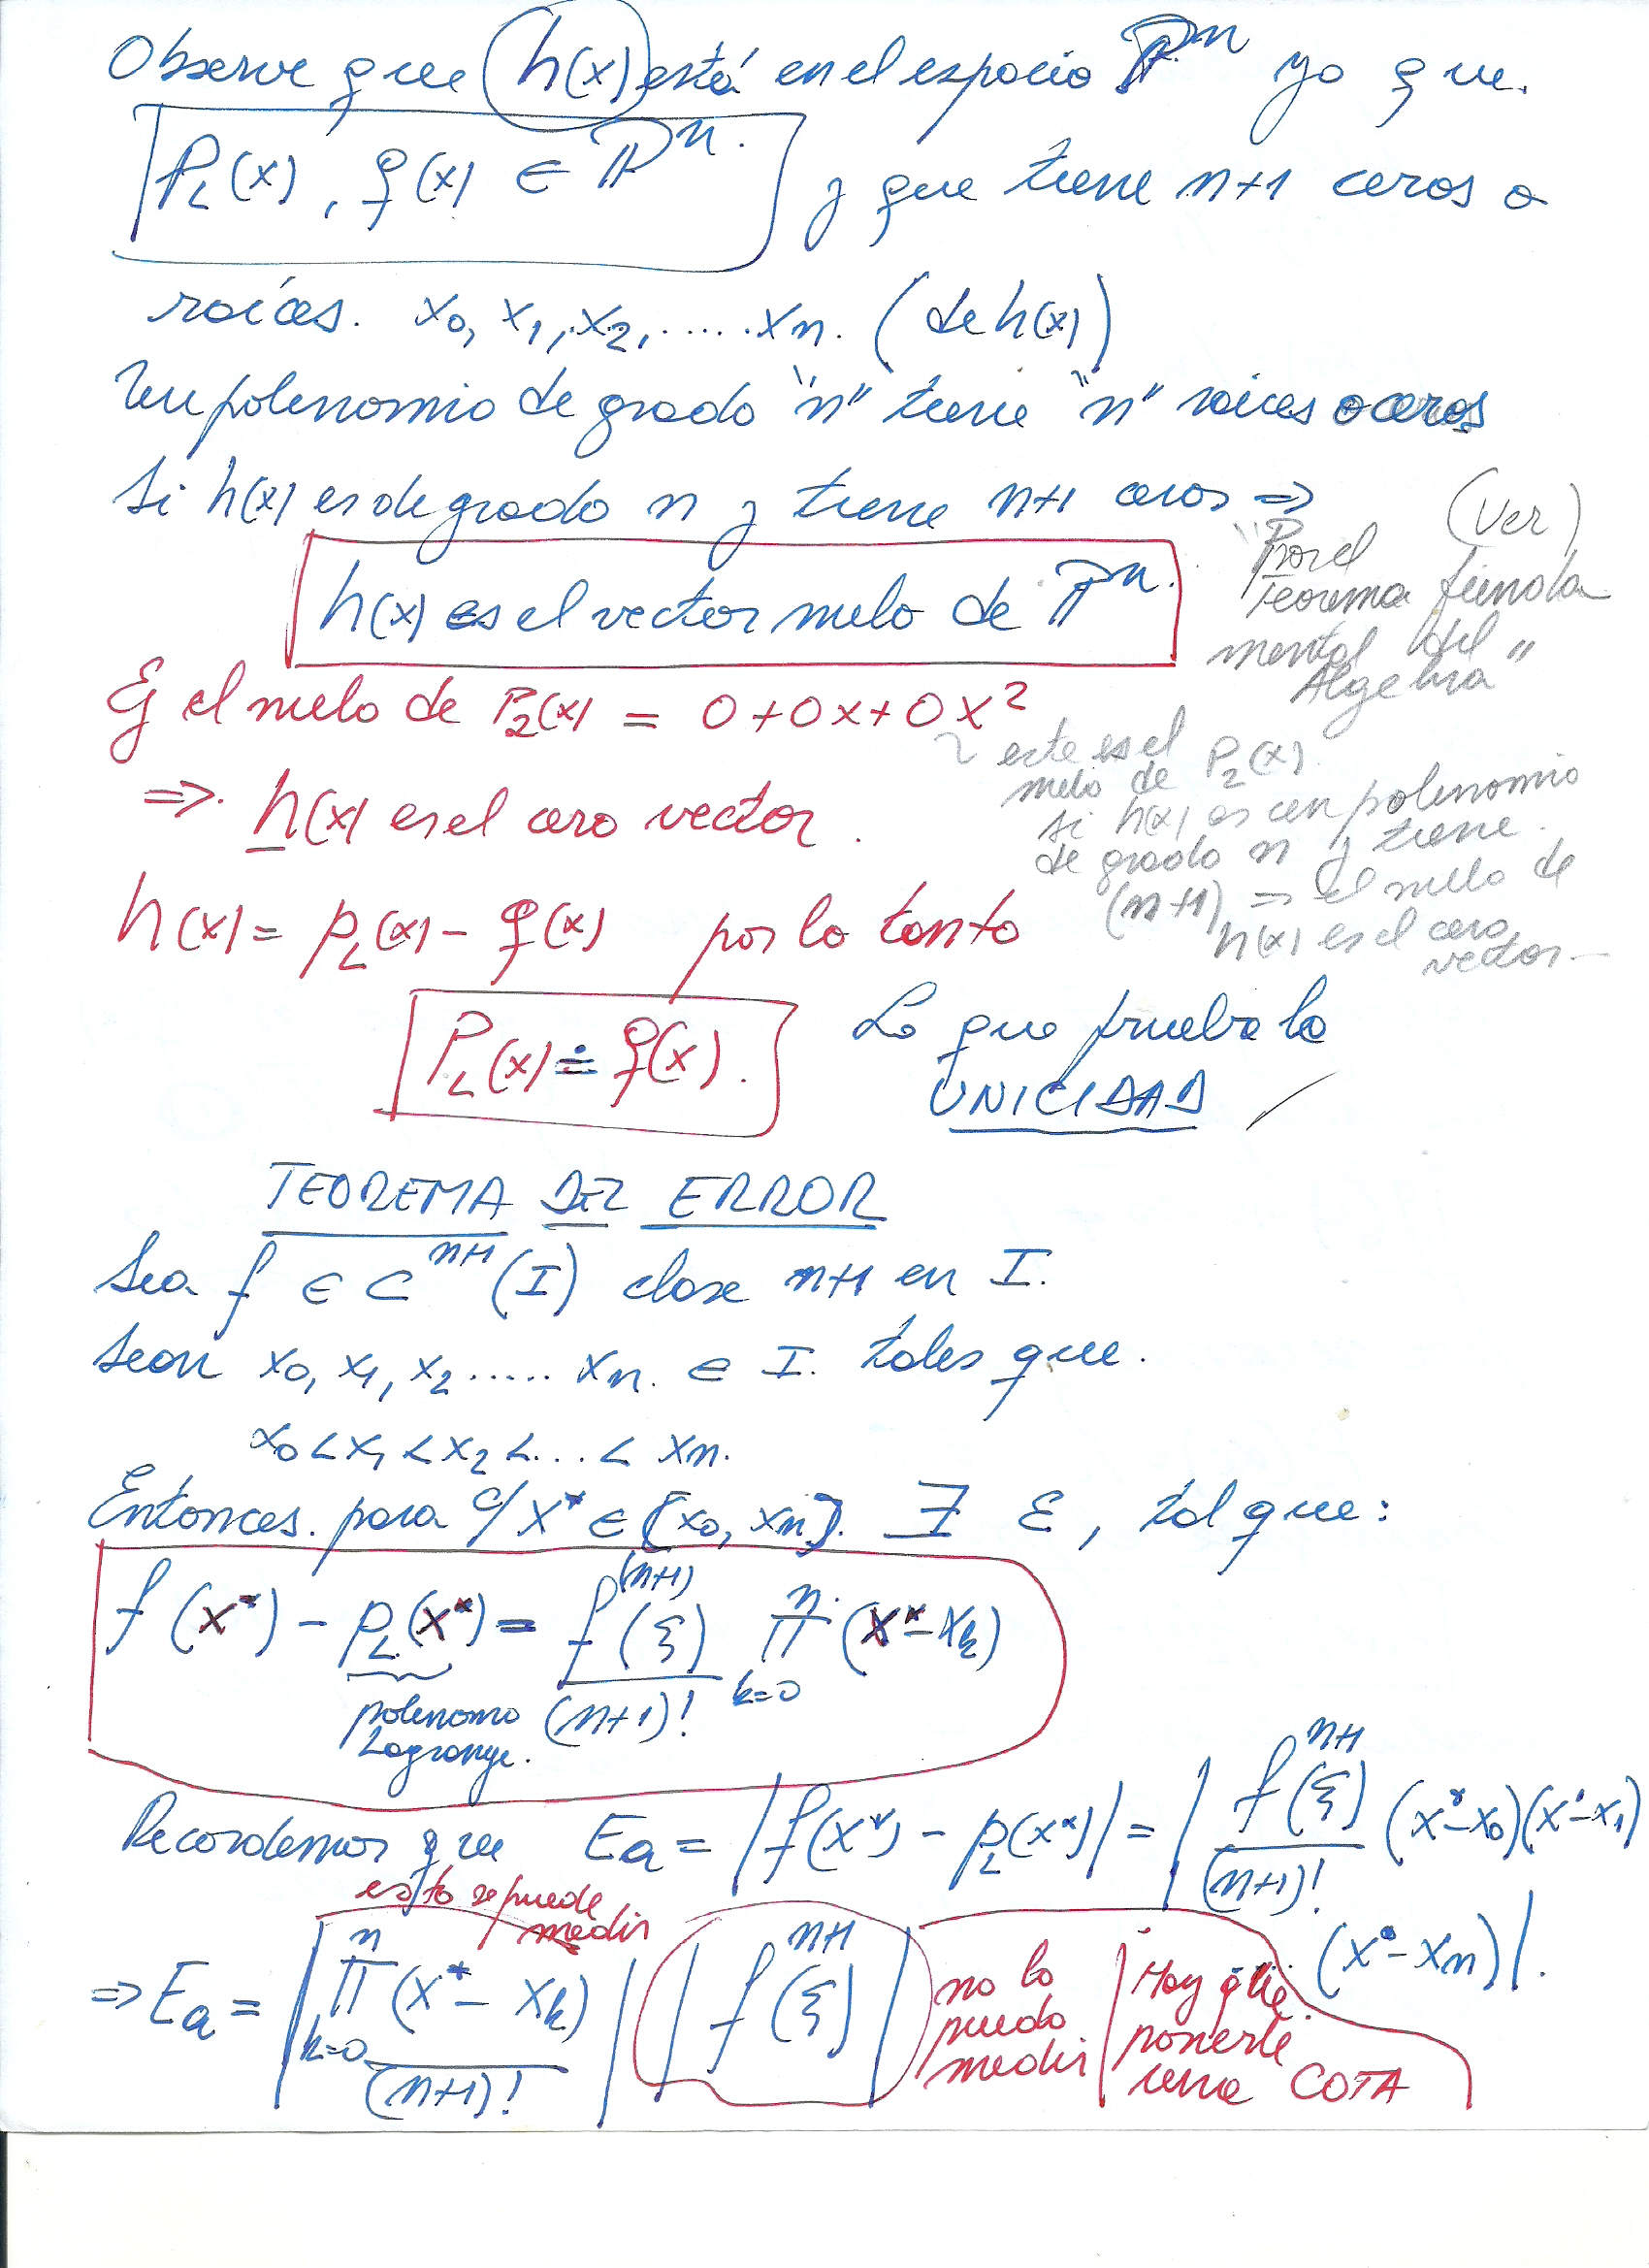 Observe que h(x) está en el espacio ℙⁿ ya que.
P_L(x), q(x) ∈ ℙⁿ. y que tiene n+1 ceros o
raíces. x₀, x₁, x₂, ..... xn. (de h(x))
Un polinomio de grado "n" tiene "n" raices o ceros
Si h(x) es de grado n y tiene n+1 ceros ⇒
(Ver)
"Por el
Teorema funda
mental del
Algebra"
h(x) es el vector nulo de ℙⁿ.
Ej el nulo de P₂(x) = 0+0x+0x²
este es el
nulo de P₂(x).
si h(x) es un polinomio
de grado n y tiene
(n+1) ⇒ el nulo de
h(x) es el cero
vector.
⇒. h(x) es el cero vector.
h(x) = P_L(x) - q(x) por lo tanto
P_L(x) = q(x). Lo que prueba la
UNICIDAD
TEOREMA DEL ERROR
Sea f ∈ Cⁿ⁺¹(I) clase n+1 en I.
Sean x₀, x₁, x₂ ..... xn. ∈ I. tales que.
x₀ < x₁ < x₂ < ... < xn.
Entonces. para c/ x* ∈ [x₀, xn]. ∃ ε, tal que:
f(x*) - P_L(x*) = f⁽ⁿ⁺¹⁾(ξ) / (n+1)! ∏ₖ₌₀ⁿ (x* - xₖ)
polinomo
Lagrange.
Recordemos que Ea = |f(x*) - P_L(x*)| = | fⁿ⁺¹(ξ) / (n+1)! (x*-x₀)(x*-x₁)
(x* - xn)|.
esto se puede
medir
⇒ Ea = | ∏ₖ₌₀ⁿ (x* - xₖ) / (n+1)! | | fⁿ⁺¹(ξ) |
no lo
puedo
medir
Hay que
ponerle
una COTA